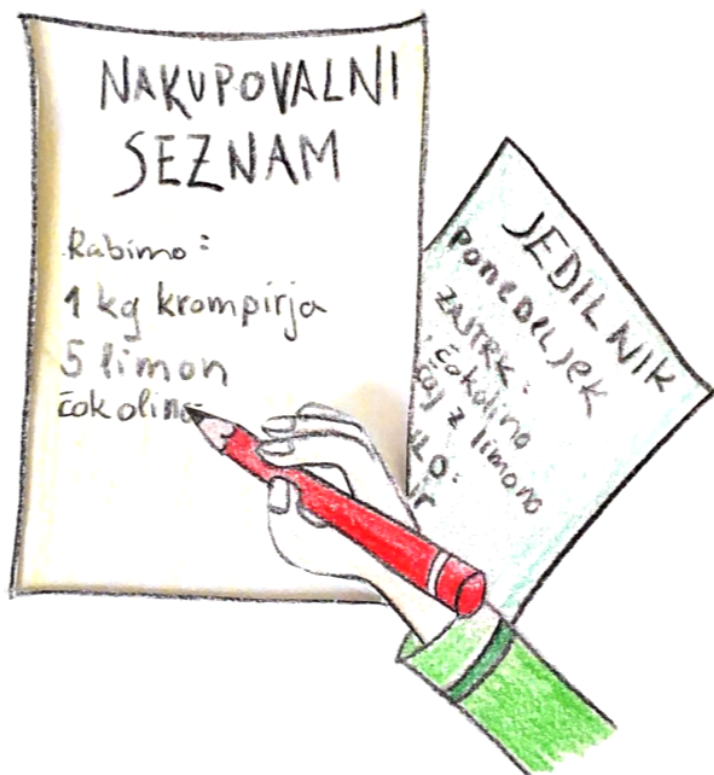 NAKUPOVALNI
SEZNAM
Rabimo:
1 kg krompirja
5 limon
čokolino
JEDILNIK
PONEDELJEK
ZAJTRK:
čokolino
čaj z limono